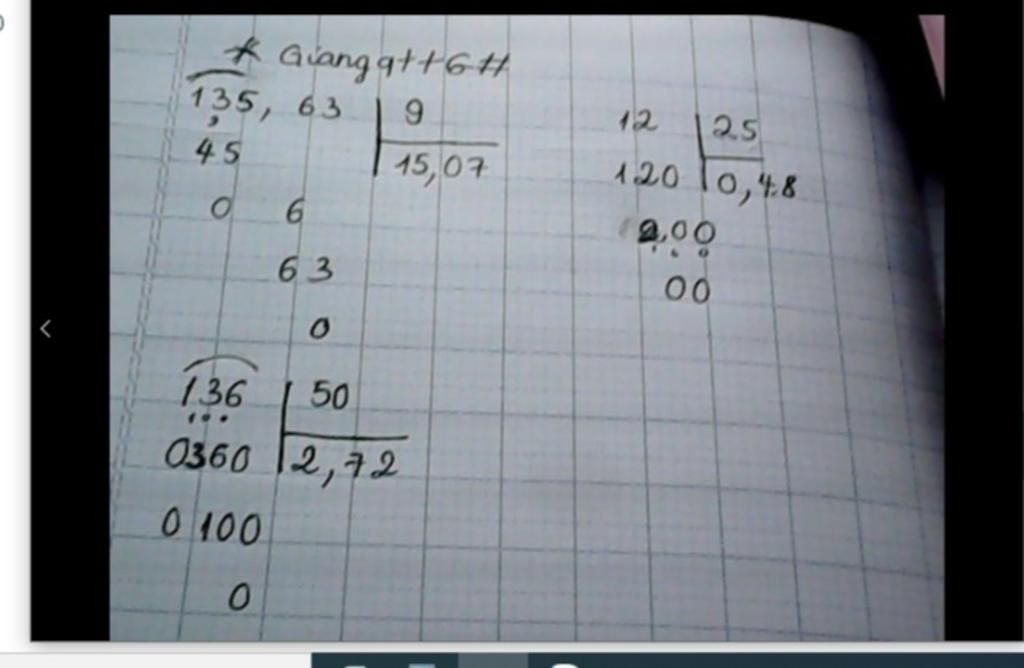 * Giang9tt6tt
135, 63 9
45 15,07
0 6
63
0
12 25
120 0,48
200
00
136 50
0360 2,72
0100
0